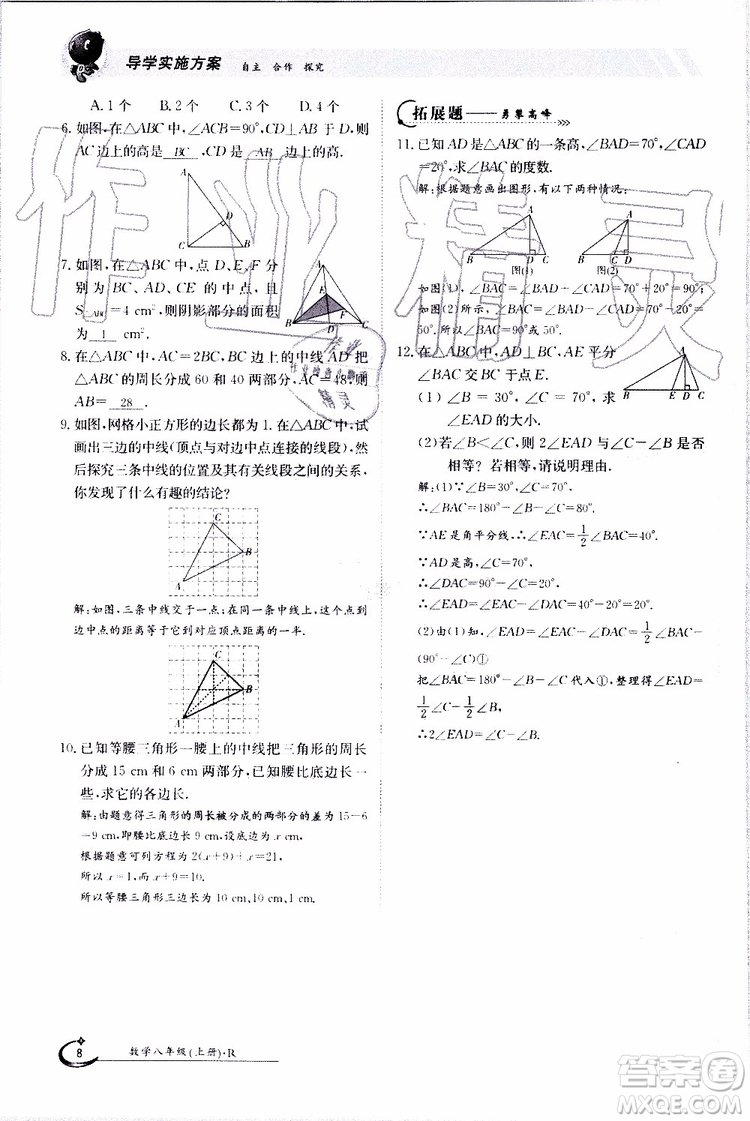 导学实施方案 自主 合作 探究
A.1个 B.2个 C.3个 D.4个
6. 如图,在△ABC中,∠ACB=90°,CD⊥AB于D,则
AC边上的高是 BC ,CD是 AB 边上的高.
A
D
C B
7. 如图,在△ABC中,点D、E、F分
别为BC、AD、CE的中点,且
S△ABC=4 cm²,则阴影部分的面积
为 1 cm².
A
E
F
B D C
8. 在△ABC中,AC=2BC,BC边上的中线AD把
△ABC的周长分成60和40两部分,AC=48,则
AB= 28 .
9. 如图,网格小正方形的边长都为1.在△ABC中,试
画出三边的中线(顶点与对边中点连接的线段),然
后探究三条中线的位置及其有关线段之间的关系,
你发现了什么有趣的结论?
C
B
A
解:如图,三条中线交于一点;在同一条中线上,这个点到
边中点的距离等于它到对应顶点距离的一半.
C
B
A
10. 已知等腰三角形一腰上的中线把三角形的周长
分成15 cm和6 cm两部分,若腰比底边长一
些,求它的各边长.
解:由题意得三角形的周长被分成的两部分的差为15-6
=9 cm,即腰比底边长9 cm,设底边为x cm,
根据题意可列方程为2(x+9)+x=21,
所以x=1,x+9=10.
所以等腰三角形三边长为10 cm,10 cm,1 cm.
拓展题——勇攀高峰
11. 已知AD是△ABC的一条高,∠BAD=70°,∠CAD
=20°,求∠BAC的度数.
解:根据题意画出图形,有以下两种情况:
A A
B D C B C D
图(1) 图(2)
如图(1)所示,∠BAC=70°+20°=90°;
如图(2)所示,∠BAC=70°-20°=
50°.所以∠BAC=90°或50°.
12. 在△ABC中,AD是高,AE平分
∠BAC交BC于点E.
(1)∠B=30°,∠C=70°,求
∠EAD的大小.
(2)若∠B<∠C,则2∠EAD与∠C-∠B是否
相等?若相等,请说明理由.
解:(1)∵∠B=30°,∠C=70°,
∴∠BAC=180°-∠B-∠C=80°.
∵AE是角平分线,∴∠EAC=1/2∠BAC=40°.
∵AD是高,∠C=70°,
∴∠DAC=90°-∠C=20°,
∴∠EAD=∠EAC-∠DAC=40°-20°=20°.
(2)由(1)知,∠EAD=∠EAC-∠DAC=1/2∠BAC-
(90°-∠C)①
把∠BAC=180°-∠B-∠C代入①,整理得∠EAD=
1/2∠C-1/2∠B,
∴2∠EAD=∠C-∠B.
8 数学八年级(上册)·R
作业精灵
答案圈
MXQE.COM